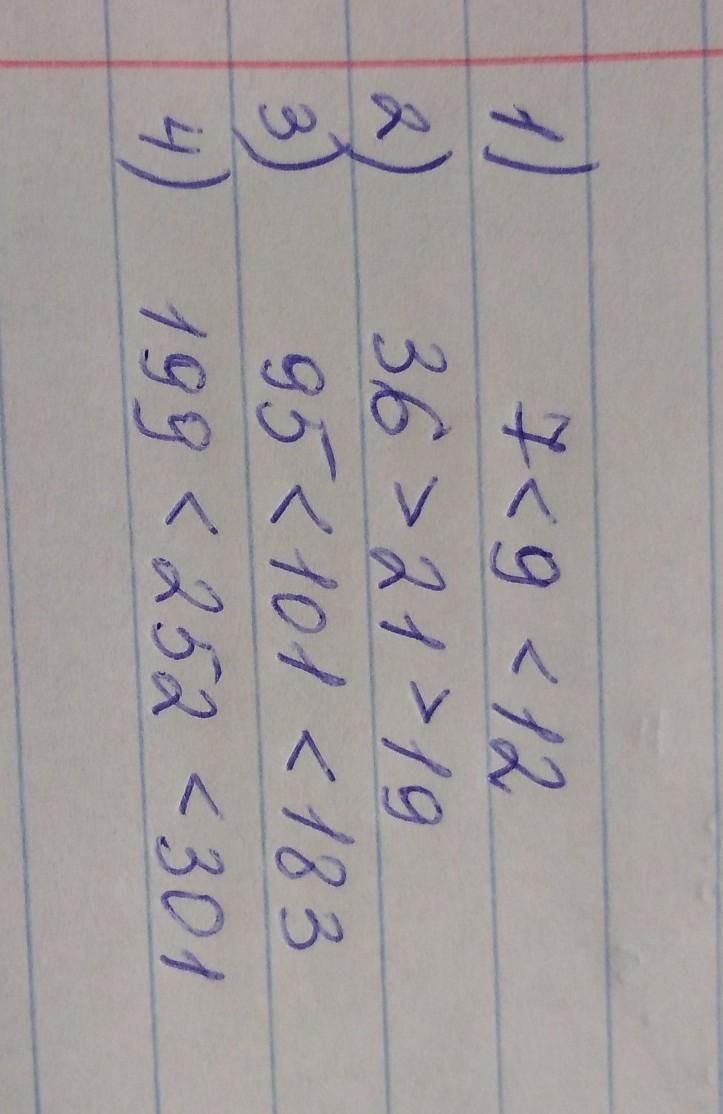 1) 7 < 9 < 12
2) 36 > 21 > 19
3) 95 < 101 < 183
4) 199 < 252 < 301